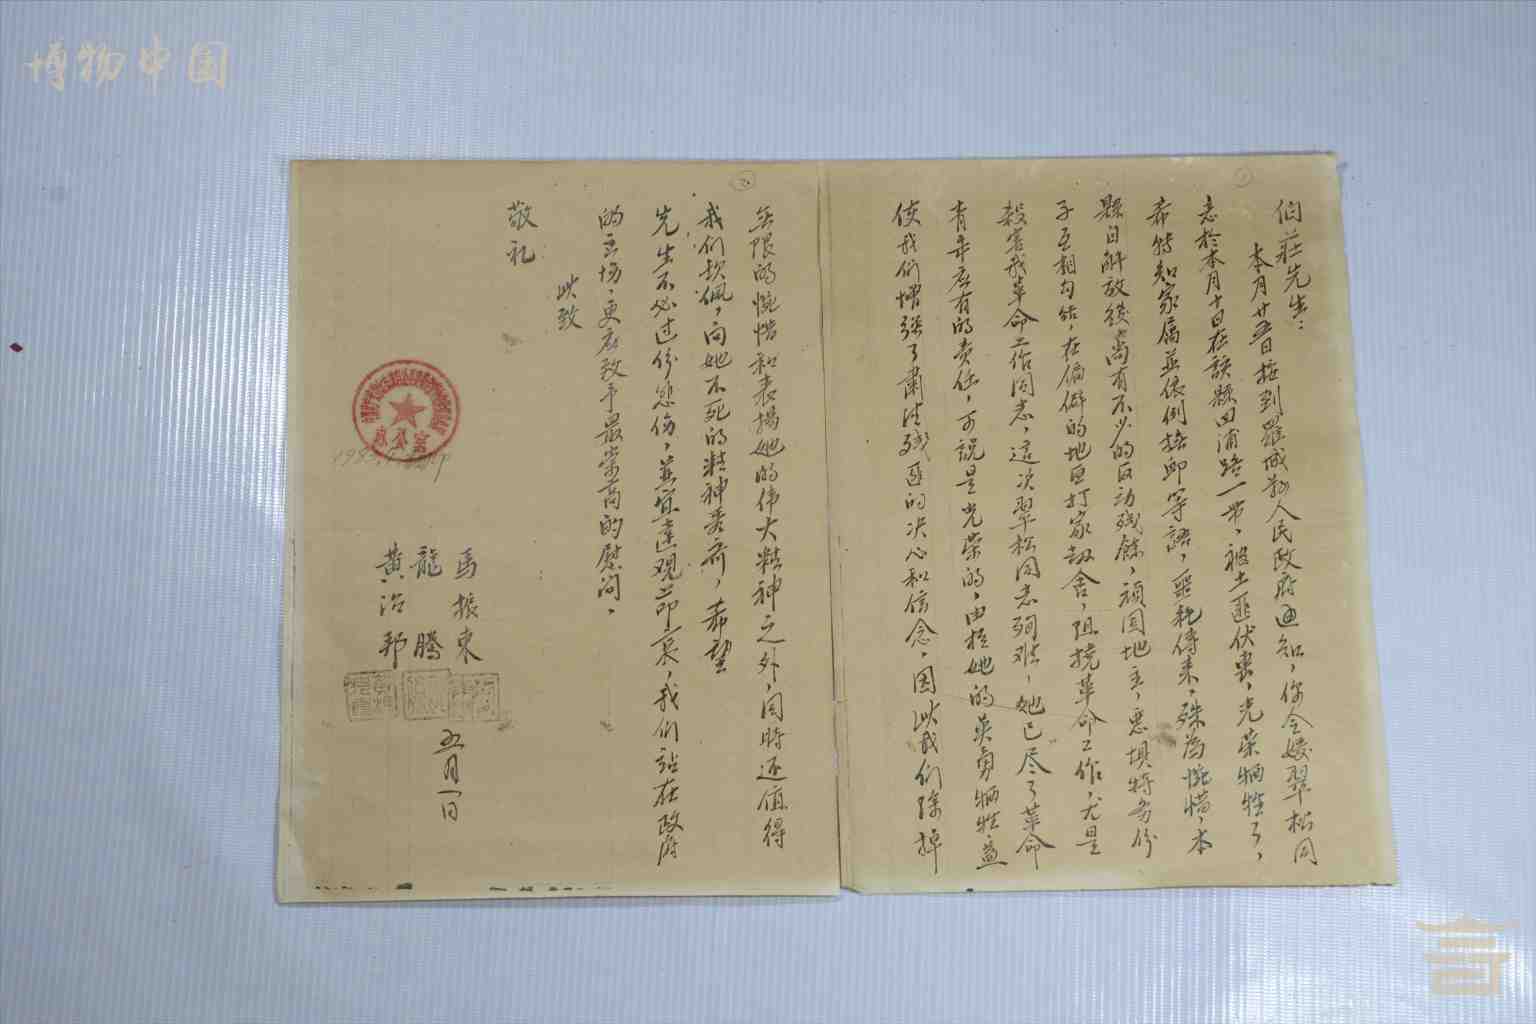 博物中国
1
伯莊先生：
本月廿五日接到羅城縣人民政府通知，你令媛翠松同
志於本月十日在該縣四浦路一带，被土匪伏击，光荣牺牲了，
希特知家属並依例撫卹等語，噩耗傳来，殊为惋惜，本
縣自解放後尚有不少的反动残餘，頑固地主，恶惧特务份
子互相勾结，在偏僻的地区打家劫舍，阻挠革命工作，尤是
殺害我革命工作同志，這次翠松同志殉难，她已尽了革命
青年应有的责任，可説是光荣的，由於她的英勇牺牲，益
使我们增强了肅清残匪的决心和信念，因此我们除掉
2
無限的惋惜和表揚她的伟大精神之外，同時还值得
我们欽佩，向她不死的精神看齐，希望
先生不必过份悲伤，並宜達观节哀，我们站在政府
的立场，更应致予最崇高的慰问。
此致
敬礼
馬振東
龍騰
黄治邦
五月一日